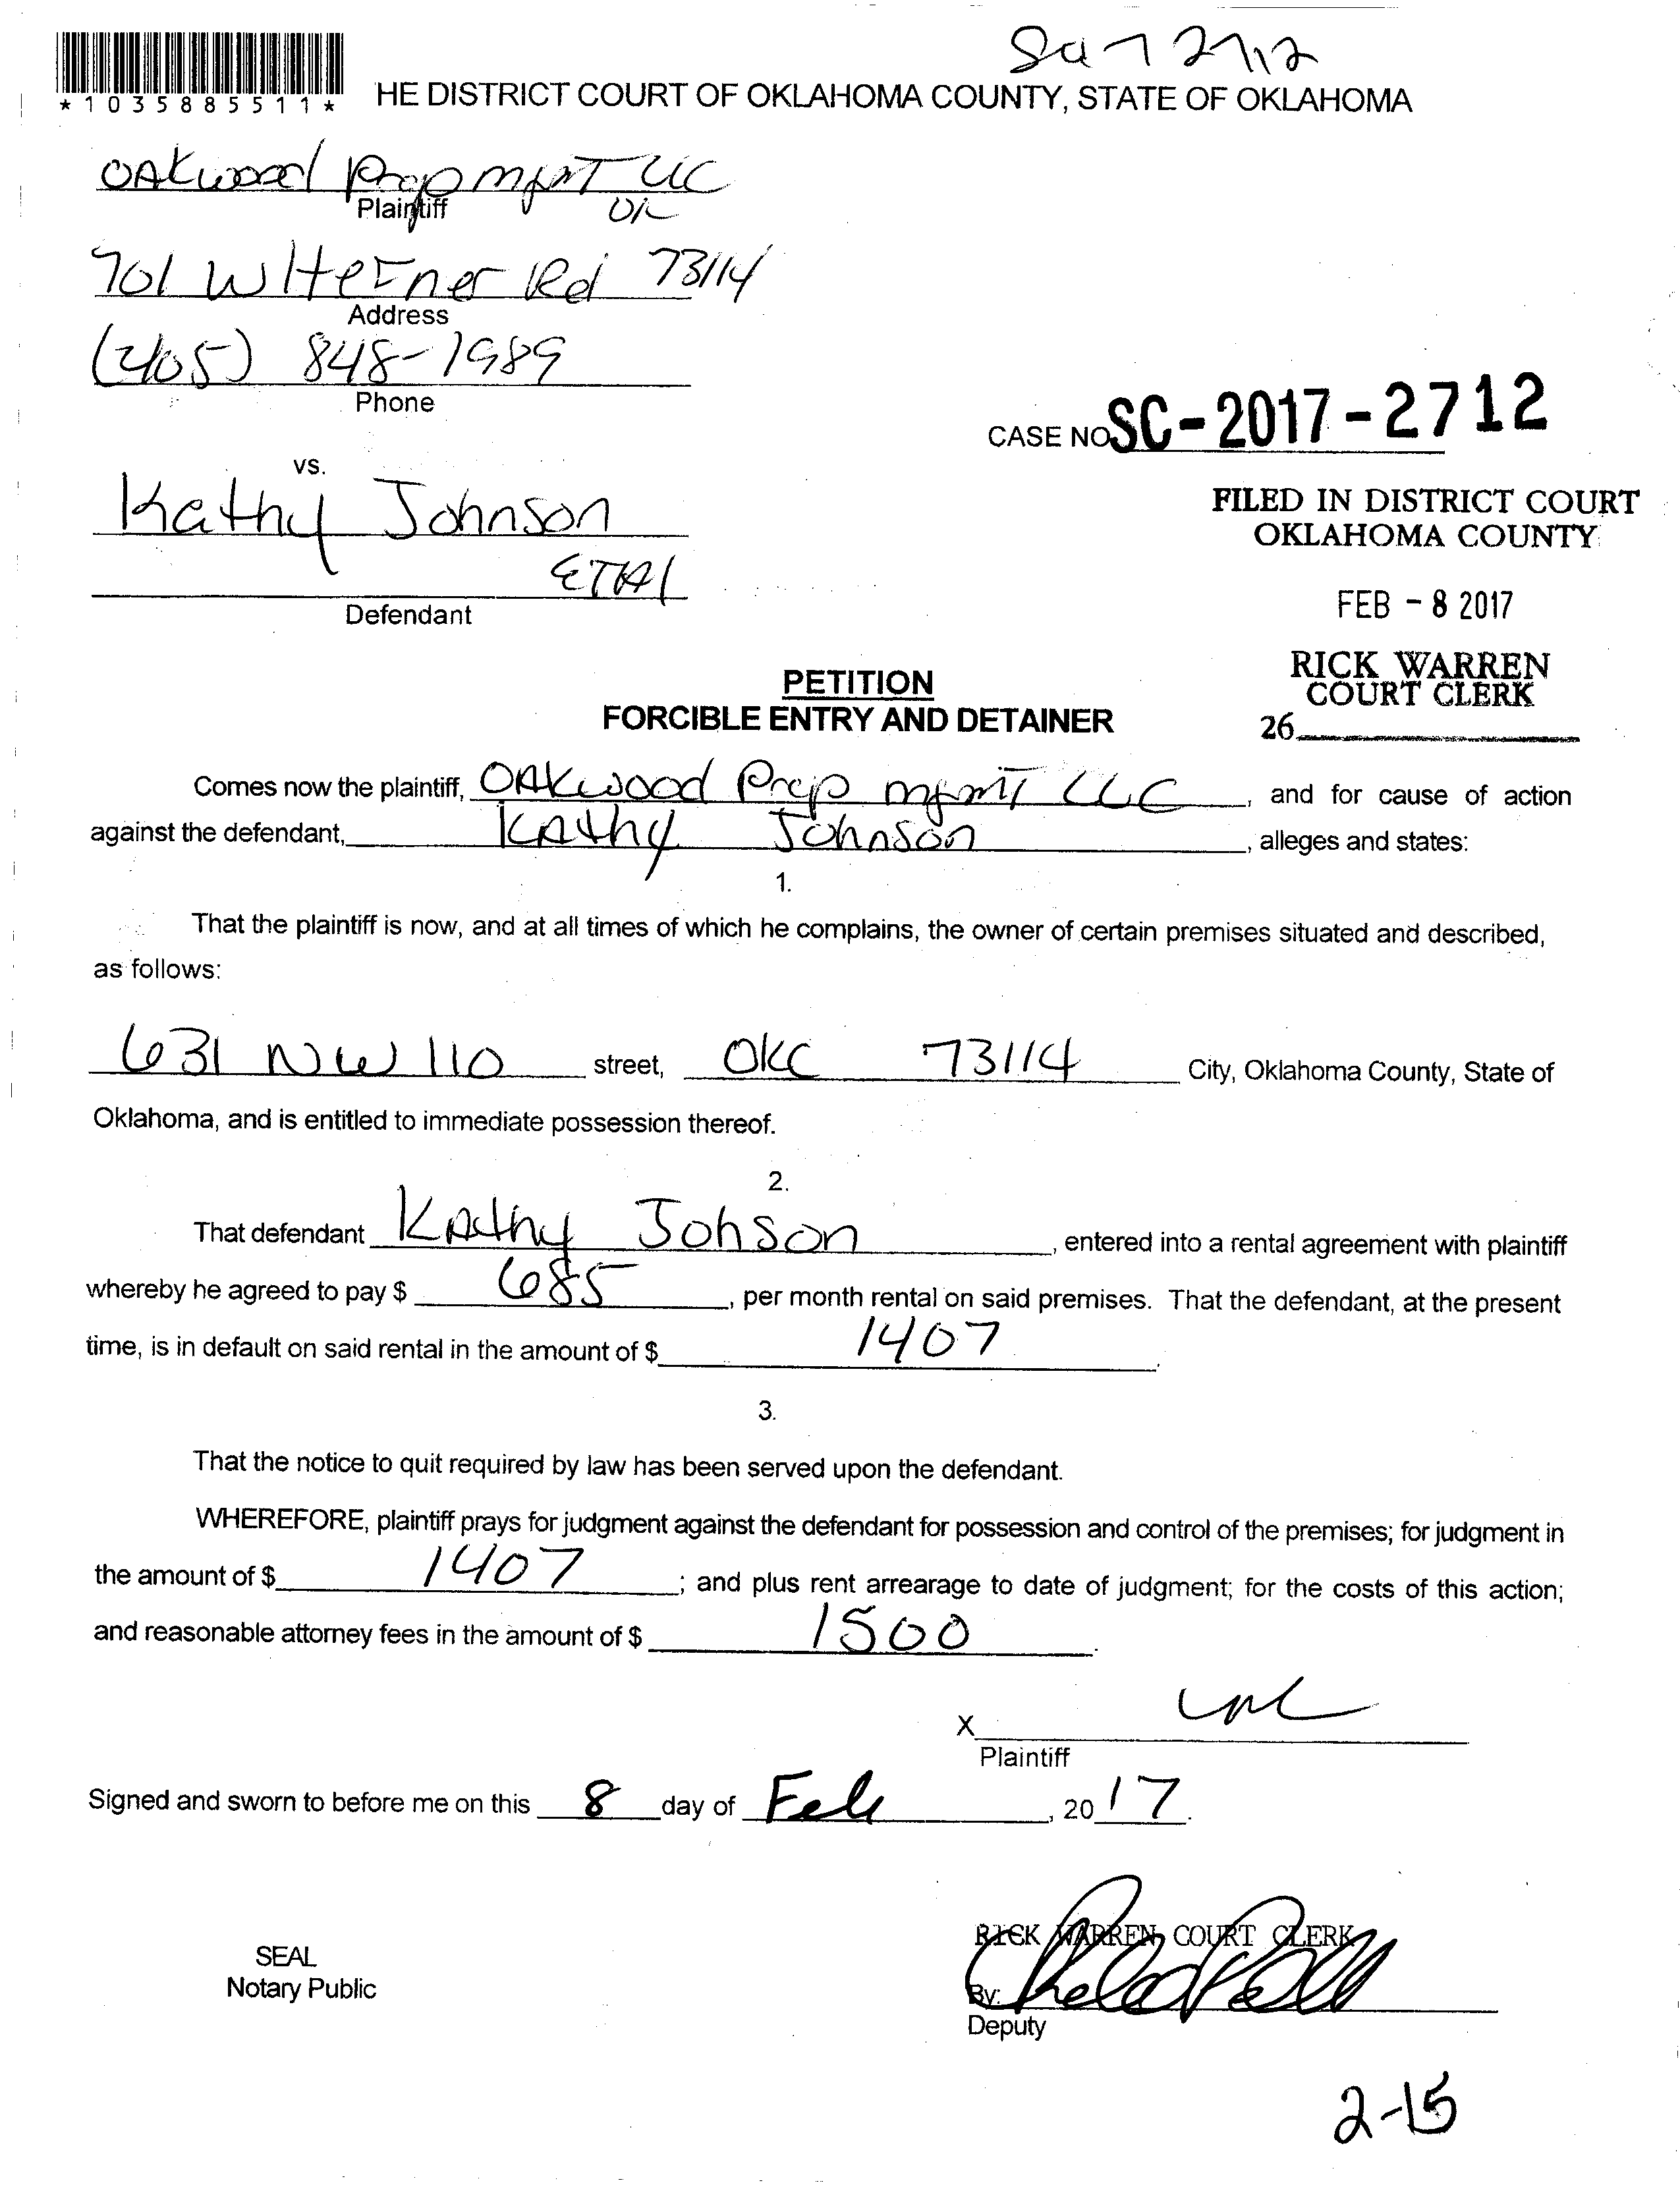 *1035885511*
HE DISTRICT COURT OF OKLAHOMA COUNTY, STATE OF OKLAHOMA
OAkwood Prop mgmT LLC
Plaintiff
701 W Hefner Rd 73114
Address
(405) 848-1989
Phone
CASE NO SC-2017-2712
vs.
Kathy Johnson
FILED IN DISTRICT COURT
OKLAHOMA COUNTY
ETAl
Defendant
FEB - 8 2017
RICK WARREN
COURT CLERK
26
PETITION
FORCIBLE ENTRY AND DETAINER
Comes now the plaintiff, OAKwood Prop mgmT LLC, and for cause of action
against the defendant, KAthy Johnson, alleges and states:
1.
That the plaintiff is now, and at all times of which he complains, the owner of certain premises situated and described,
as follows:
631 NW 110 street, OKC 73114 City, Oklahoma County, State of
Oklahoma, and is entitled to immediate possession thereof.
2.
That defendant KAthy Johson, entered into a rental agreement with plaintiff
whereby he agreed to pay $ 685, per month rental on said premises. That the defendant, at the present
time, is in default on said rental in the amount of $ 1407.
3.
That the notice to quit required by law has been served upon the defendant.
WHEREFORE, plaintiff prays for judgment against the defendant for possession and control of the premises; for judgment in
the amount of $ 1407; and plus rent arrearage to date of judgment; for the costs of this action;
and reasonable attorney fees in the amount of $ 1500.
X
Plaintiff
Signed and sworn to before me on this 8 day of Feb, 2017.
RICK WARREN COURT CLERK
SEAL
Notary Public
By:
Deputy
2-15